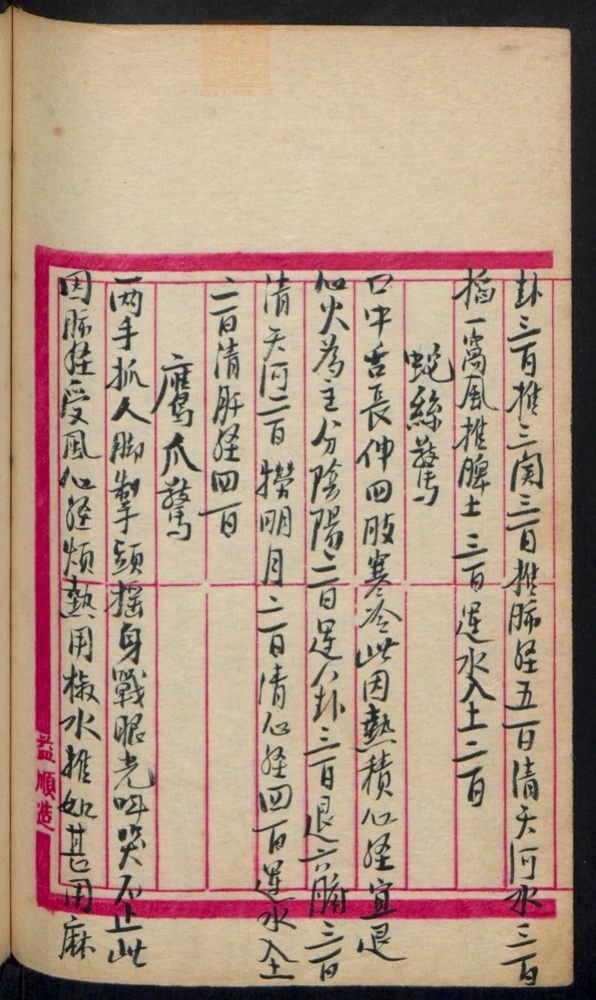 卦三百推三関三百推肺经五百清天河水三百
掐一窩風推脾土三百運水入土二百
蛇絲驚
口中舌長伸四肢寒冷此因熱積心经宜退
心火為主分陰陽二百運八卦三百退六腑三百
清天河二百撈明月二百清心经四百運水入土
二百清肝经四百
鷹爪驚
两手抓人脚掣頭摇身戰眼光呌哭不止此
因肺经受風心经煩熱用椒水推如甚用麻
益順造